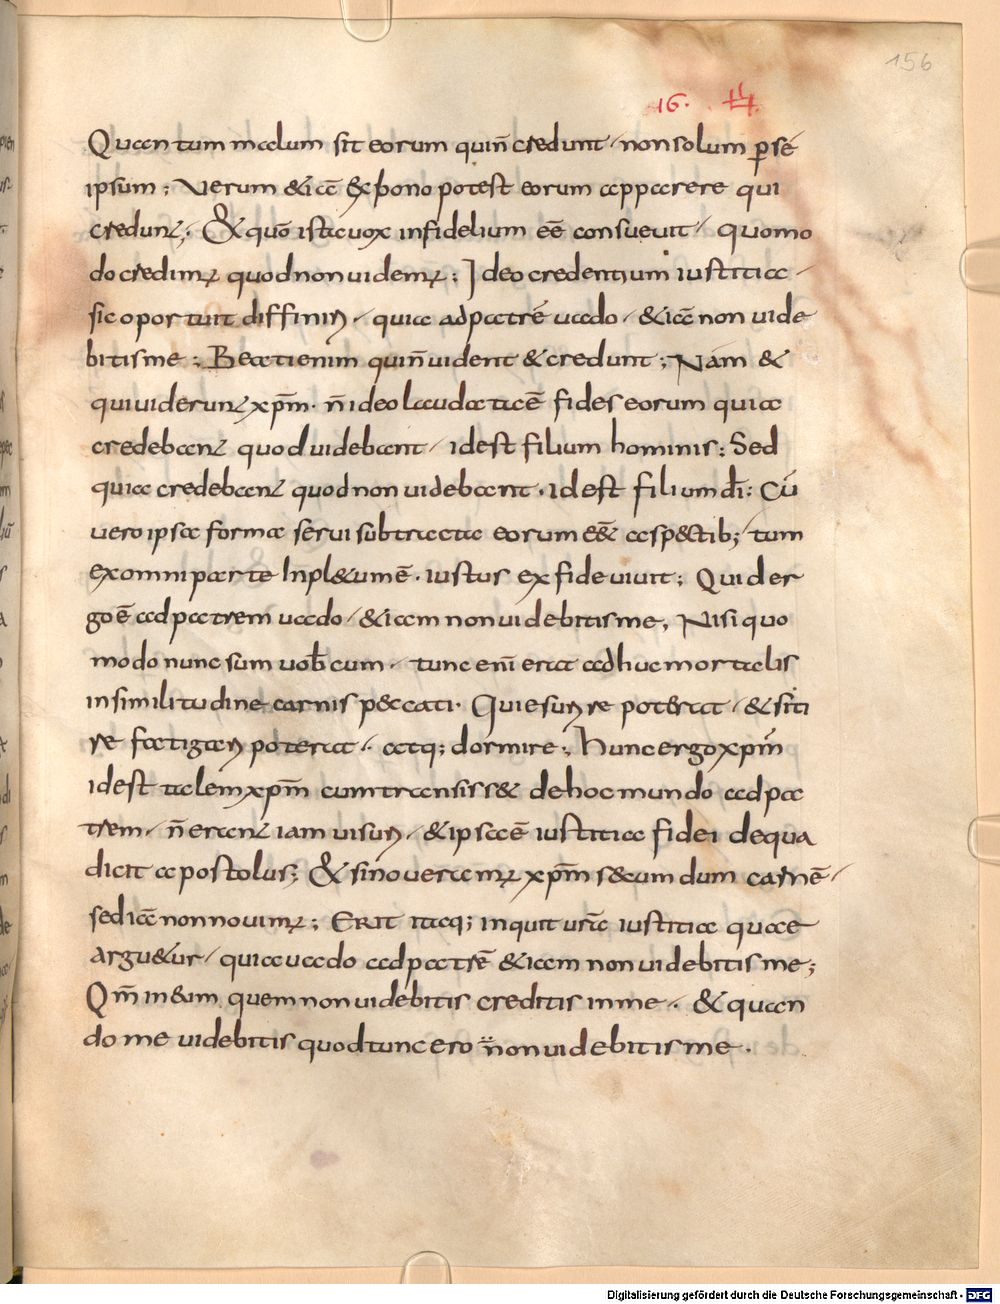 156
16. 14.
Quantum malum sit eorum quin̄ credunt / non solum p̱ se
ipsum; Verum &iā ex bono potest eorum apparere qui
credunt; & quō ista uox infidelium eē consueuit / quomo
do credimꝰ quod non uidemꝰ: Ideo credentium iustitia /
sic oportuit diffiniri / quia ad patrē uado / &iā non uide
bitis me; Beati enim quin̄ uident & credunt; Nam &
qui uiderunt xp̄m. n̄ ideo laudata ē fides eorum quia
credebant quod uidebant / id est filium hominis: Sed
quia credebant quod non uidebant. id est filium dī: Cū
uero ipsa forma serui subtracta eorum eēt aspectib; tum
ex omni parte Inpl&um ē. iustus ex fide uiuit; Quid er
go ē ad patrem uado / &iam non uidebitis me, Nisi quo
modo nunc sum uob̄cum / tunc enī erat adhuc mortalis
in similitudine carnis peccati. Qui esurire poterat / & siti
re fatigari poterat / atq; dormire; Hunc ergo xp̄m
id est talem xp̄m cum transiss& de hoc mundo ad pa
trem / n̄ erant iam uisuri / & ipsa ē iustitia fidei de qua
dicit apostolus; & si noueramꝰ xp̄m secundum carnē /
sed iā non nouimꝰ; Erit itaq; inquit ur̄a iustitia qua
argu&ur / quia uado ad patrē &iam non uidebitis me;
Qm̄ in eum quem non uidebitis creditis in me / & quan
do me uidebitis quod tunc ero non uidebitis me.
Digitalisierung gefördert durch die Deutsche Forschungsgemeinschaft - DFG